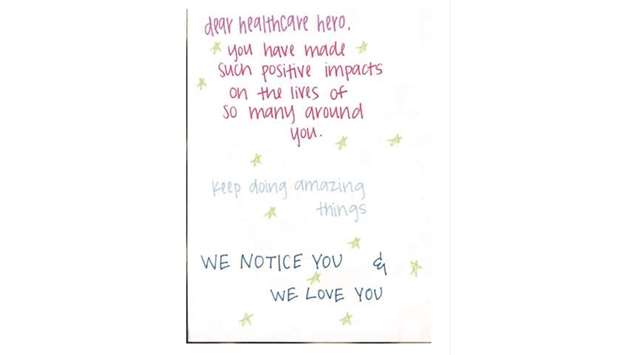 dear healthcare hero,
you have made
such positive impacts
on the lives of
so many around
you.
keep doing amazing
things
WE NOTICE YOU &
WE LOVE YOU